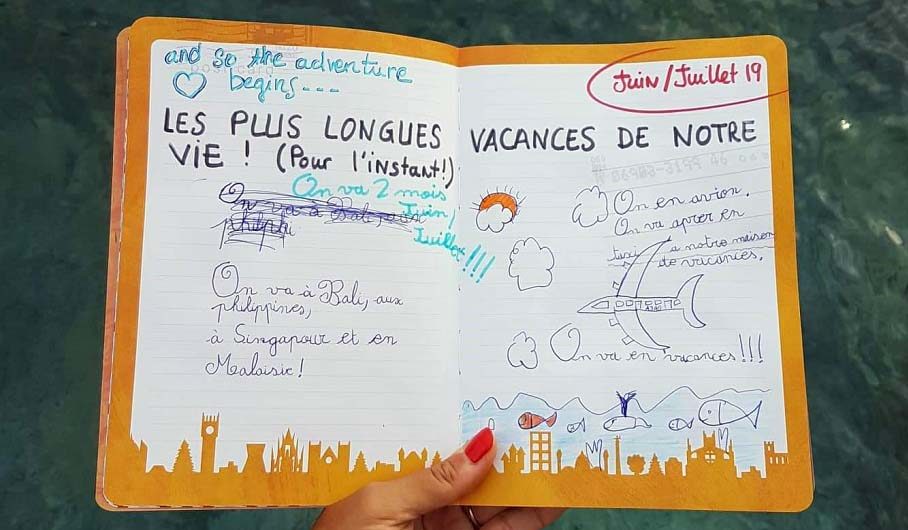 and so the adventure
begins...
Juin/Juillet 19
LES PLUS LONGUES VACANCES DE NOTRE
VIE ! (Pour l'instant!)
On va 2 mois
Juin/
Juillet!!!
On va à Bali,
On va à Bali, aux
philippines,
à Singapour et en
Malaisie!
On en avion.
On va aprer en
taxi a notre maison
de vacances.
On va en vacances!!!